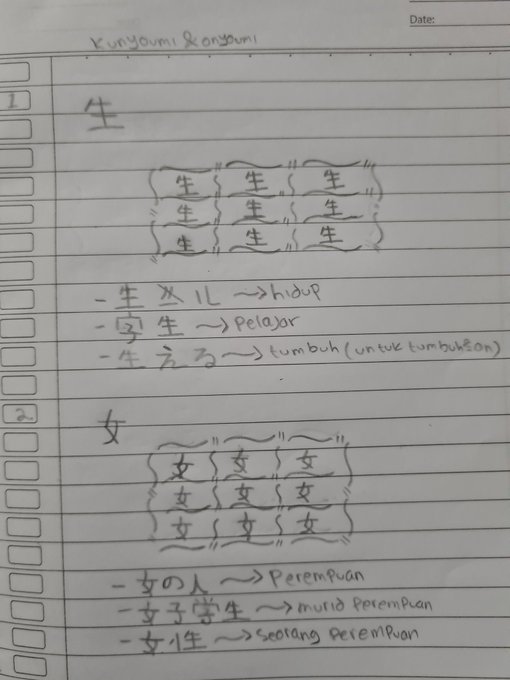 Date:
kunyoumi & onyoumi
1
生
生 生 生
生 生 生
生 生 生
- 生 ル → hidup
- 字 生 → Pelajar
- 生 える → tumbuh (untuk tumbuh²an)
2
女
女 女 女
女 女 女
女 女 女
- 女の人 → Perempuan
- 女子学生 → murid perempuan
- 女性 → seorang perempuan